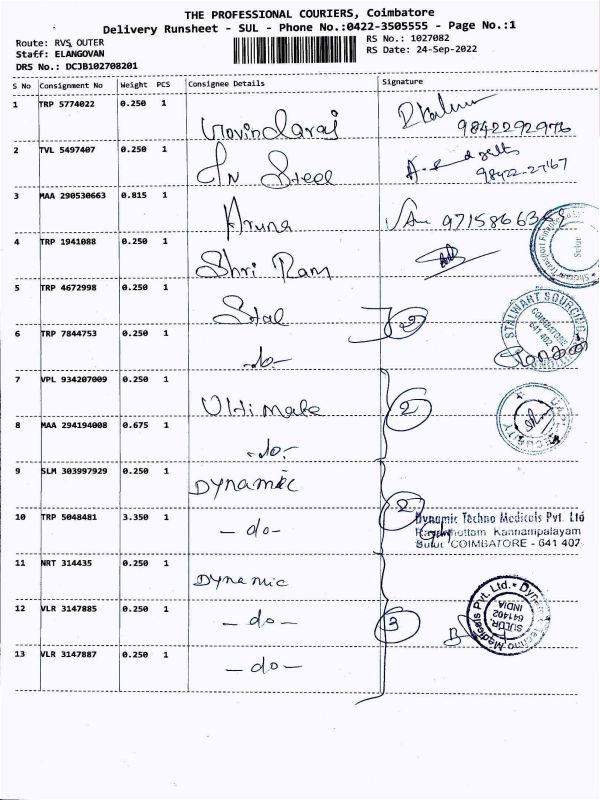 THE PROFESSIONAL COURIERS, Coimbatore
Delivery Runsheet - SUL - Phone No.:0422-3505555 - Page No.:1
Route: RVS OUTER
RS No.: 1027082
Staff: ELANGOVAN
RS Date: 24-Sep-2022
DRS No.: DCJB102708201
S No Consignment No Weight PCS Consignee Details Signature
1 TRP 5774022 0.250 1 Govindaraj
9842292976
2 TVL 5497407 0.250 1 GN Steel
98422-27167
3 MAA 290530663 0.815 1 Aruna
4 TRP 1941088 0.250 1 Shri Ram
Sulur
5 TRP 4672998 0.250 1 Stal 2
STALWART SOURCING
COIMBATORE
641 402
6 TRP 7844753 0.250 1 -do-
7 VPL 934207009 0.250 1 Ultimate 2
SECURITY
8 MAA 294194008 0.675 1 -do-
9 SLM 303997929 0.250 1 Dynamic 2
10 TRP 5048481 3.350 1 -do-
Dynamic Techno Medicals Pvt. Ltd
Kannampalayam
Sulur COIMBATORE - 641 402
11 NRT 314435 0.250 1 Dynamic
12 VLR 3147885 0.250 1 -do- 3
Dynamic Techno Medicals Pvt. Ltd.
SULUR.
641402
INDIA
13 VLR 3147887 0.250 1 -do-